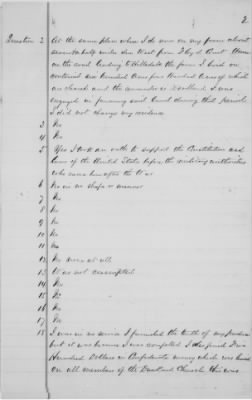 2
Question 2 At the same place where I do now on my farm about
seven & a half miles due West from Floyd Court House
on the road leading to Hillsville the farm I lived on
contained six hundred acres four Hundred acres of which
are cleared and the remainder is Woodland I was
engaged in farming said land during that period
I did not change my residence
3 No
4 No
5 Yes I took an oath to support the Constitution and
laws of the United States before the military authorities
who came here after the War
6 No in no shape or manner
7 No
8 No
9 No
10 No
11 No
12 No none at all
13 Was not conscripted
14 No
15 No
16 No
17 No
18 I was in no service I furnished the tenth of my produce
but it was because I was compelled I also paid Five
Hundred Dollars in Confederate money which was levied
on all members of the Dunkard Church this was